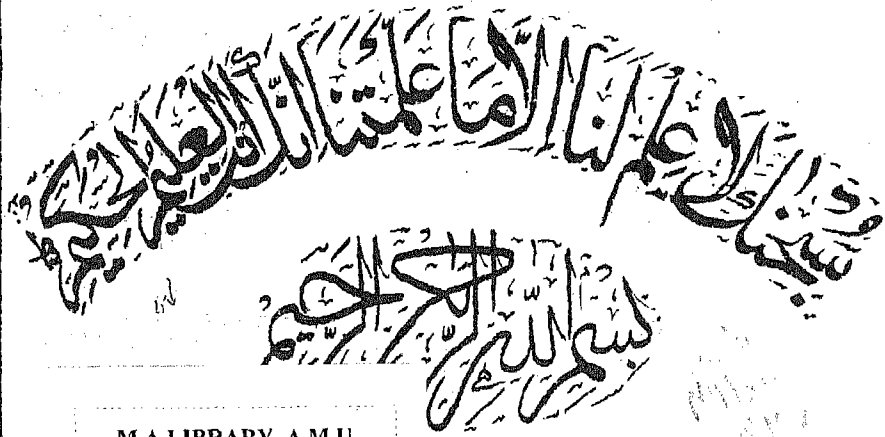 سبحنك لا علم لنا الا ما علمتنا انك انت العليم الحكيم
بسم الله الرحمن الرحيم
M.A.LIBRARY, A.M.U.